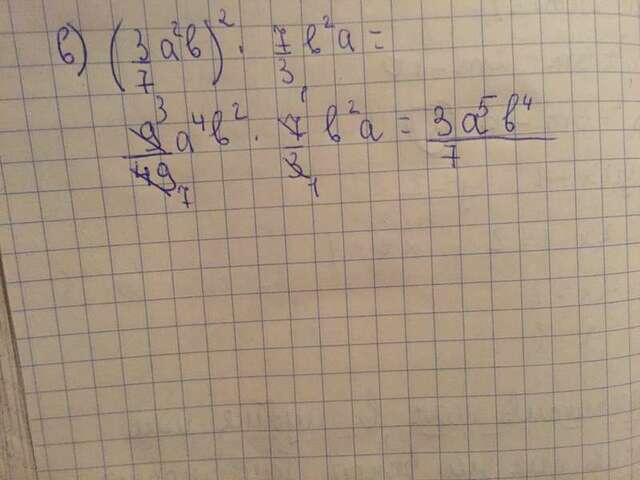 в) (3/7 a²b)² · 7/3 b²a =
9³/49₇ a⁴b² · 7¹/3₁ b²a = 3a⁵b⁴/7